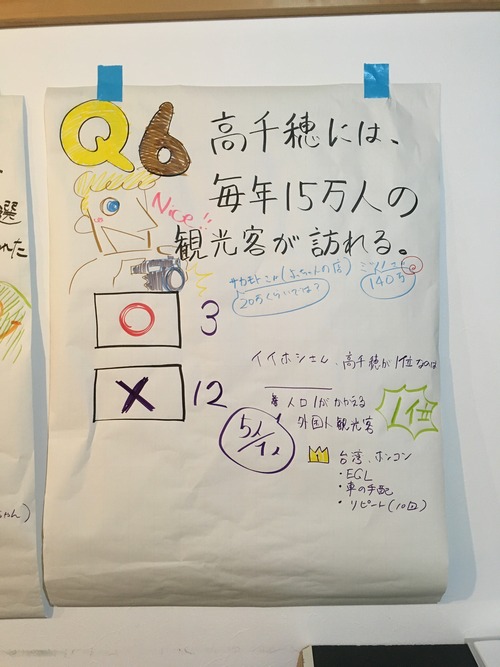 Q6
高千穂には、
毎年15万人の
観光客が訪れる。
Nice!!
20万くらいでは?
140万
3
12
イイホシさん、高千穂が1位なのは
人口1人がかかえる
外国人観光客
1位
5人/1人
1
台湾、ホンコン
・EGL
・車の手配
・リピート(10回)
選
れた
ちゃん)